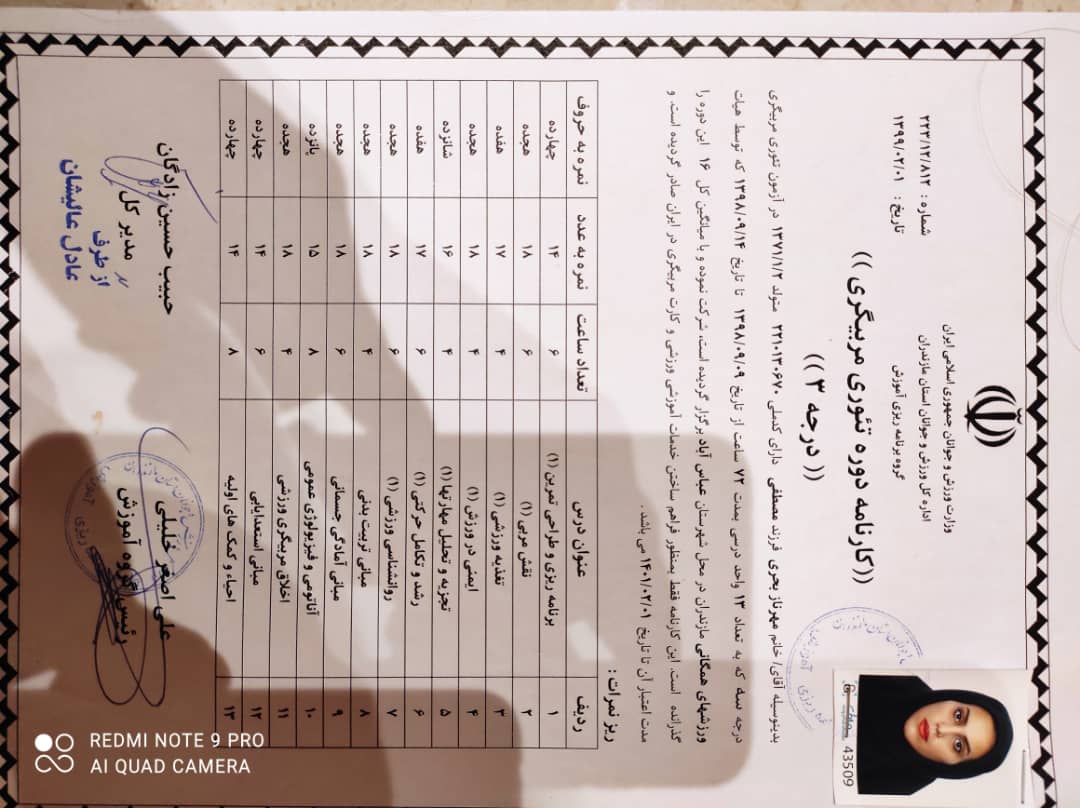 وزارت ورزش و جوانان جمهوری اسلامی ایران
اداره کل ورزش و جوانان استان مازندران
گروه برنامه ریزی آموزش
شماره : ۲۳۳/۱۲/۸۱۲
تاریخ : ۱۳۹۹/۰۲/۰۱
((کارنامه دوره تئوری مربیگری ))
(( درجه ۳ ))
بدینوسیله آقای/ خانم مهرناز بحری فرزند مصطفی دارای کدملی ۲۲۱۰۱۳۰۶۷۰ متولد ۱۳۷۱/۱/۲ در آزمون تئوری مربیگری
درجه سه که به تعداد ۱۳ واحد درسی بمدت ۷۲ ساعت از تاریخ ۱۳۹۸/۰۹/۰۹ تا تاریخ ۱۳۹۸/۰۹/۱۴ که توسط هیات
ورزشهای همگانی مازندران در محل شهرستان عباس آباد برگزار گردیده است، شرکت نموده و با میانگین کل ۱۶ این دوره را
گذرانده است. این کارنامه فقط بمنظور فراهم ساختن خدمات آموزشی ورزشی و کارت مربیگری در ایران صادر گردیده است. و
مدت اعتبار آن تا تاریخ ۱۴۰۱/۰۲/۰۱ می باشد .
ریز نمرات :
ردیف عنوان درس تعداد ساعت نمره به عدد نمره به حروف
۱ برنامه ریزی و طراحی تمرین (۱) ۶ ۱۴ چهارده
۲ نقش مربی (۱) ۶ ۱۸ هجده
۳ تغذیه ورزشی (۱) ۴ ۱۷ هفده
۴ ایمنی در ورزش (۱) ۴ ۱۸ هجده
۵ تجزیه و تحلیل مهارتها (۱) ۴ ۱۶ شانزده
۶ رشد و تکامل حرکتی (۱) ۶ ۱۷ هفده
۷ روانشناسی ورزشی (۱) ۶ ۱۸ هجده
۸ مبانی تربیت بدنی ۴ ۱۸ هجده
۹ مبانی آمادگی جسمانی ۶ ۱۸ هجده
۱۰ آناتومی و فیزیولوژی عمومی ۸ ۱۵ پانزده
۱۱ اخلاق مربیگری ورزشی ۴ ۱۸ هجده
۱۲ مبانی استعدادیابی ۶ ۱۴ چهارده
۱۳ احیاء و کمک های اولیه ۸ ۱۴ چهارده
علی اصغر خلیلی
رئیس گروه آموزش
حبیب حسین زادگان
مدیر کل
از طرف
عادل عالیشان
43509
REDMI NOTE 9 PRO
AI QUAD CAMERA